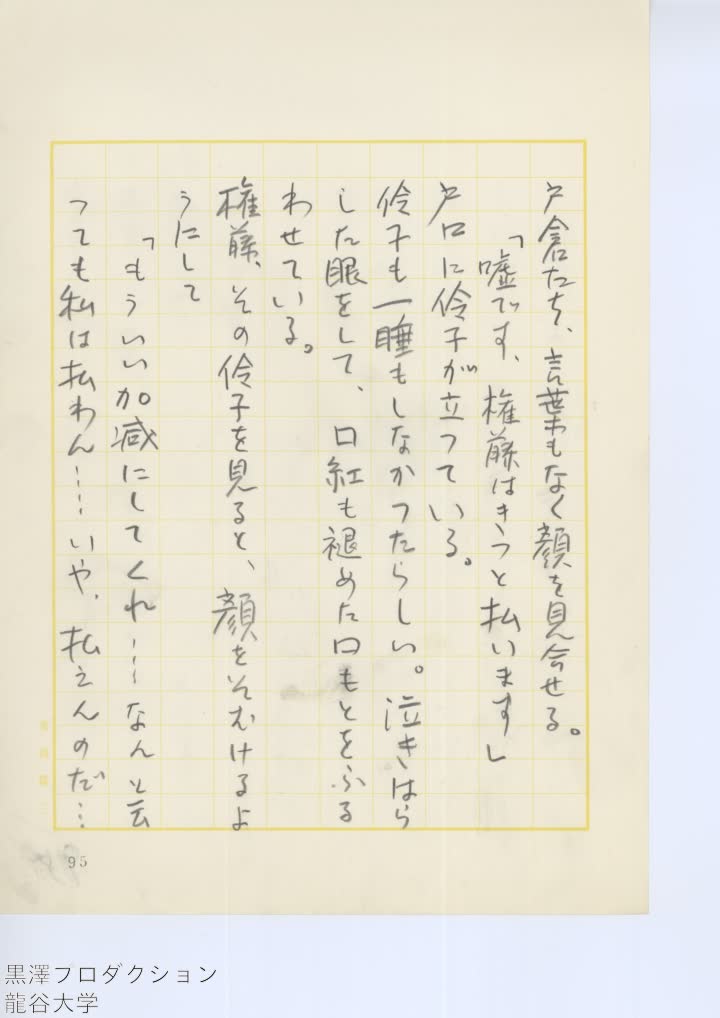 戸倉たち、言葉もなく顔を見合せる。
「嘘です、権藤はきつと払います」
戸口に伶子が立つている。
伶子も一睡もしなかつたらしい。泣きはら
した眼をして、口紅も褪めた口もとをふる
わせている。
権藤、その伶子を見ると、顔をそむけるよ
うにして
「もういい加減にしてくれ……なんと云
つても私は払わん……いや、払えんのだ…
95
黒澤プロダクション
龍谷大学